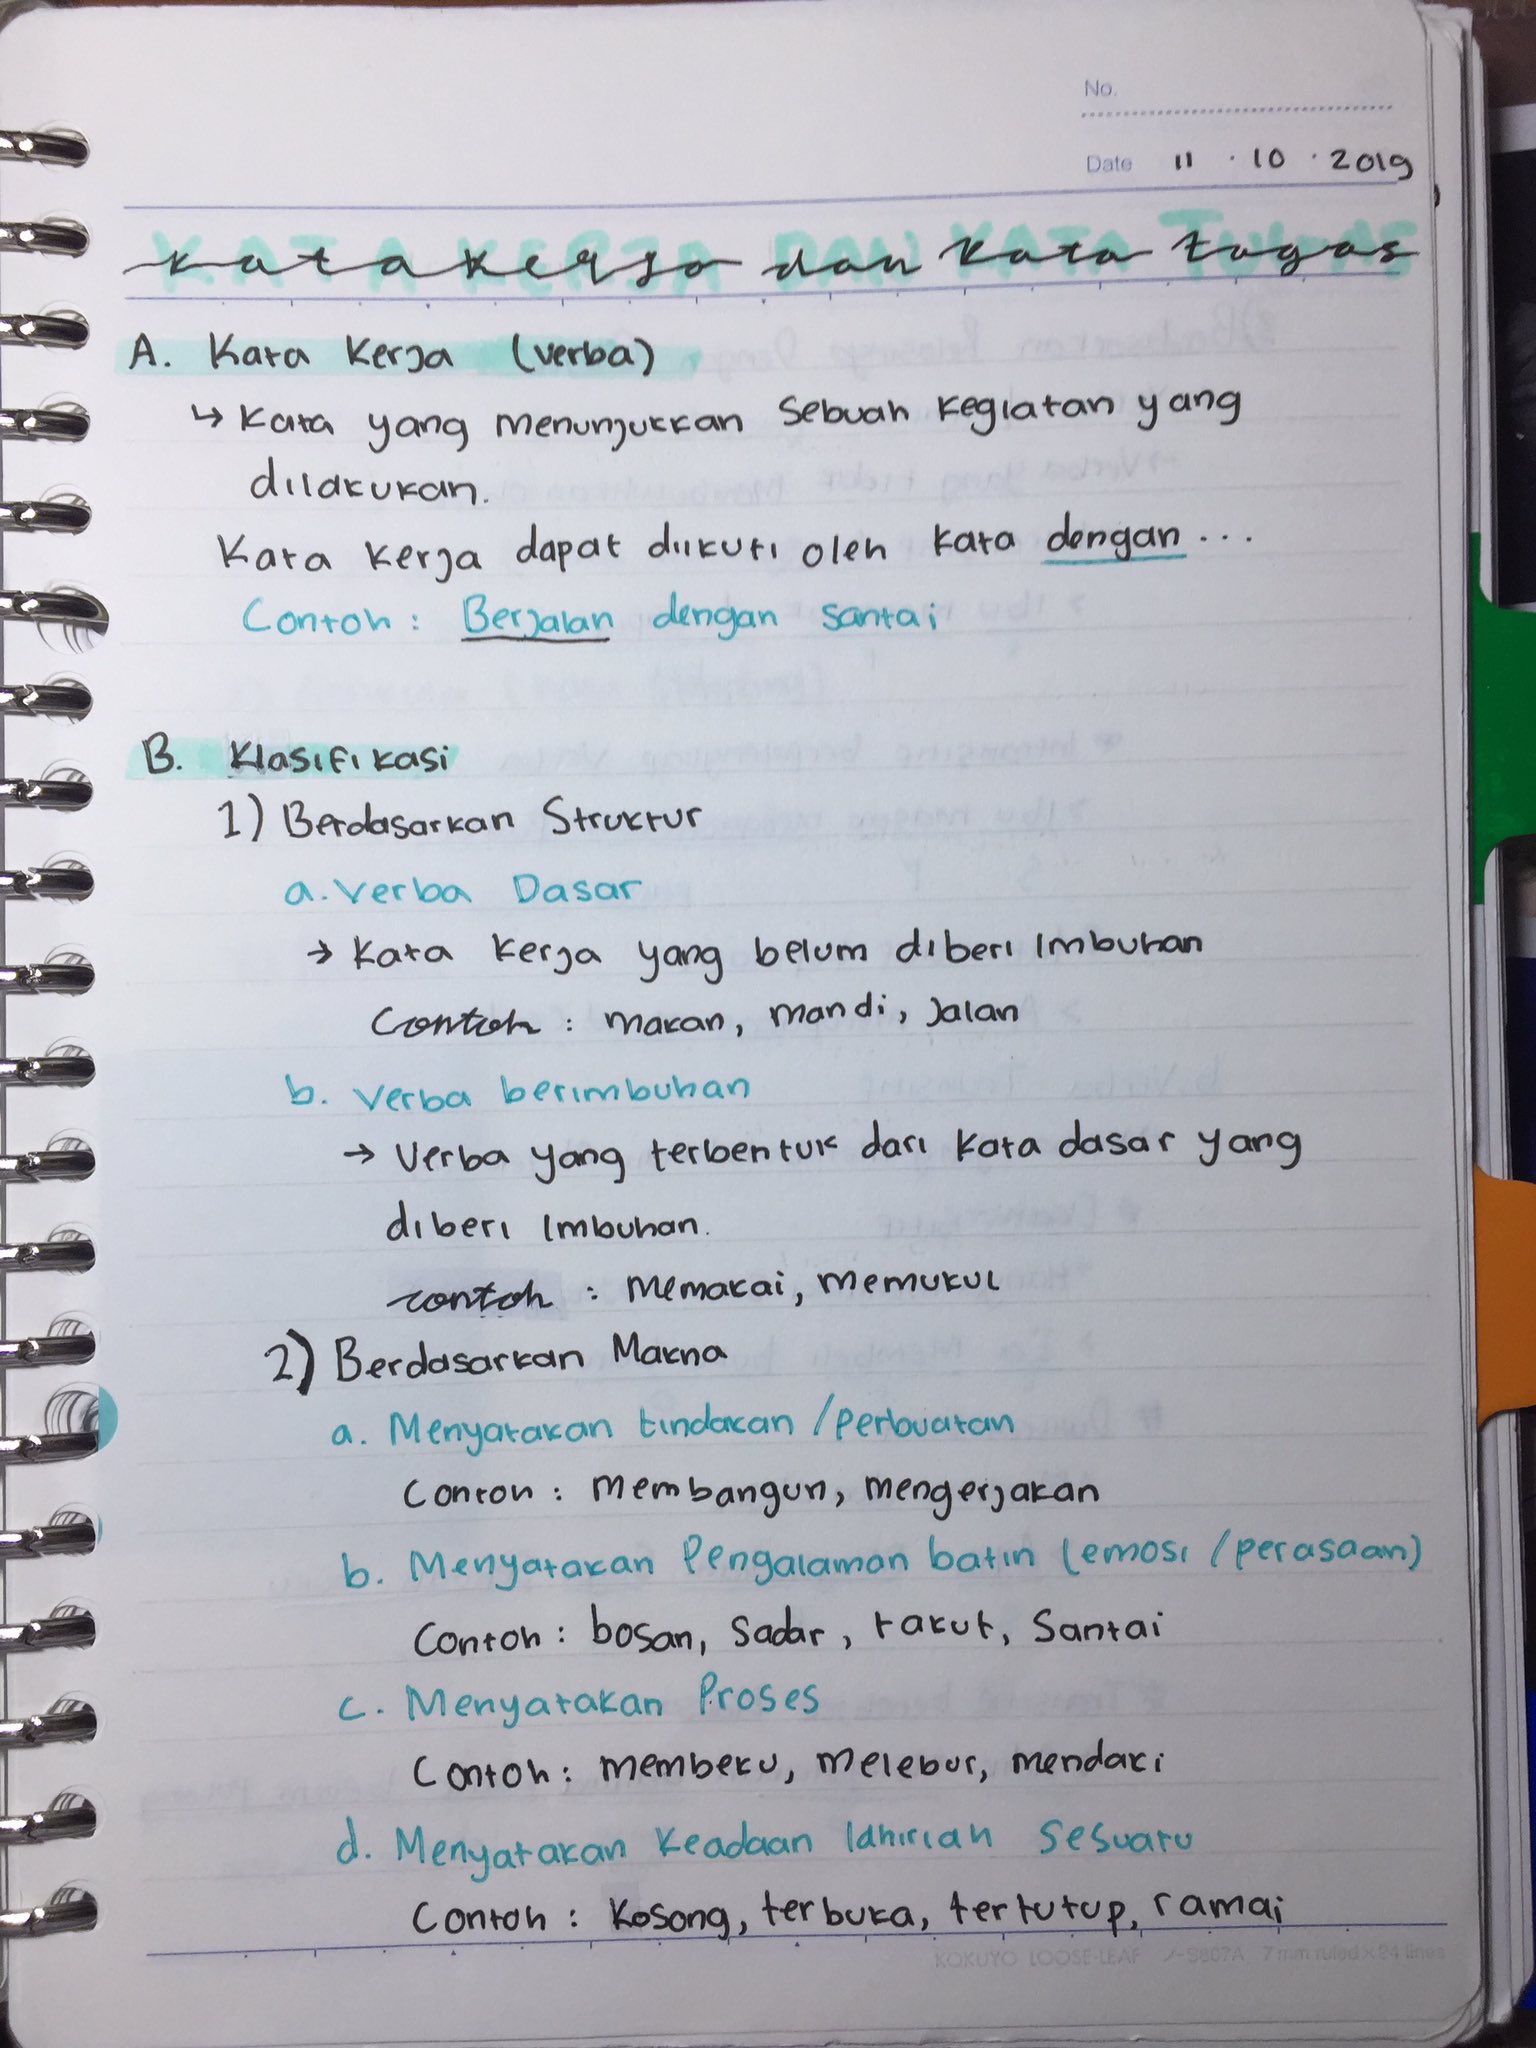 No.
Date 11 · 10 · 2019
Kata Kerja dan Kata Tugas
A. Kata Kerja (Verba)
↳ Kata yang menunjukkan sebuah kegiatan yang
dilakukan.
Kata Kerja dapat diikuti oleh kata dengan ...
Contoh : Berjalan dengan santai
B. Klasifikasi
1) Berdasarkan Struktur
a. Verba Dasar
→ Kata Kerja yang belum diberi imbuhan
Contoh : makan, mandi, jalan
b. Verba berimbuhan
→ Verba yang terbentuk dari kata dasar yang
diberi imbuhan.
contoh : Memakai, memukul
2) Berdasarkan Makna
a. Menyatakan tindakan /perbuatan
Contoh : membangun, mengerjakan
b. Menyatakan Pengalaman batin (emosi /perasaan)
Contoh : bosan, sadar, takut, santai
c. Menyatakan Proses
Contoh : membeku, melebur, mendaki
d. Menyatakan Keadaan lahiriah sesuatu
Contoh : Kosong, terbuka, tertutup, ramai
KOKUYO LOOSE-LEAF ノ-S807A 7 mm ruled × 24 lines